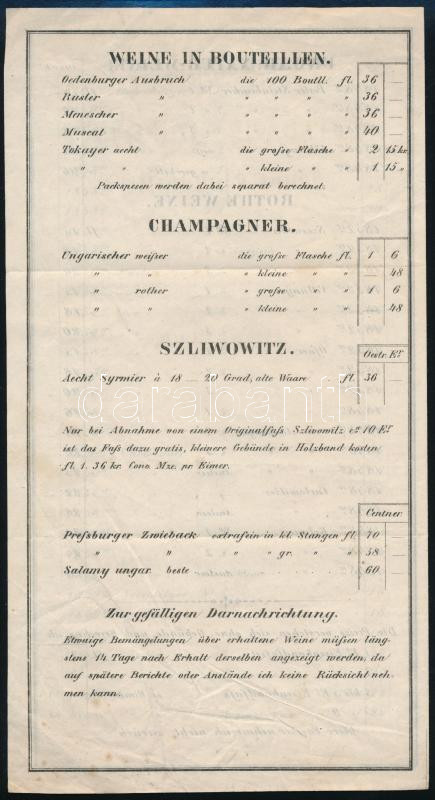 WEINE IN BOUTEILLEN.
Oedenburger Ausbruch die 100 Boutll. fl. 36 —
Ruster " " " " " 36 —
Menescher " " " " " 36 —
Muscat " " " " " 40 —
Tokayer aecht die große Flasche " 2 15 kr.
" " " kleine " " 1 15 "
Packspesen werden dabei separat berechnet.
CHAMPAGNER.
Ungarischer weißer die große Flasche fl. 1 6
" " " kleine " " 48
" rother " große " " 1 6
" " " kleine " " 48
SZLIWOWITZ.
Oestr. Er.
Aecht Syrmier à 18 — 20 Grad, alte Waare . . fl. 36 —
Nur bei Abnahme von einem Originalfaß Szlivowitz 10 Er.
ist das Faß dazu gratis, kleinere Gebünde in Holzband kosten
fl. 1. 36 kr. Conv. Mze. pr. Eimer.
Centner
Preßburger Zwieback extrafein in kl. Stangen fl. 70 —
" " " " gr. " " 58 —
Salamy ungar. beste 60 —
Zur gefälligen Darnachrichtung.
Etwaige Bemängelungen über erhaltene Weine müßen läng-
stens 14 Tage nach Erhalt derselben angezeigt werden, da
auf spätere Berichte oder Anstände ich keine Rücksicht neh-
men kann.
darabanth